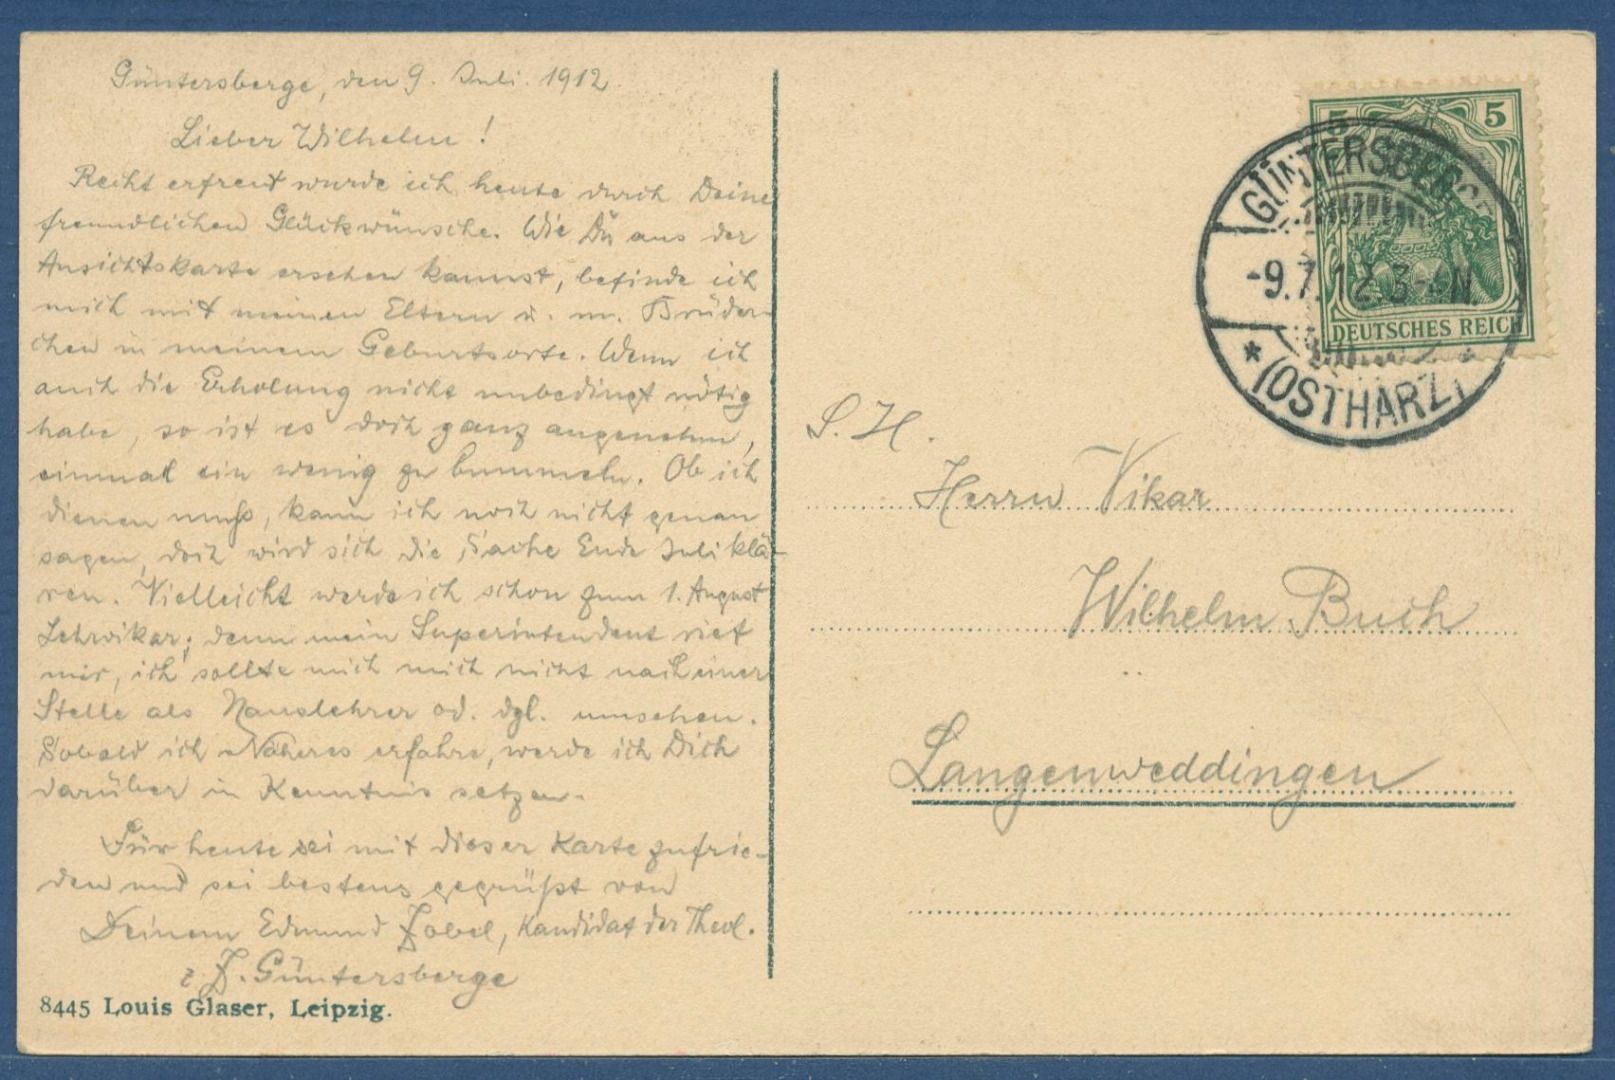 Güntersberge, den 9. Juli. 1912
Lieber Wilhelm!
Recht erfreut wurde ich heute durch Deine
freundlichen Glückwünsche. Wie Du aus der
Ansichtskarte ersehen kannst, befinde ich
mich mit meinen Eltern u. m. Brüder-
chen in meinem Geburtsorte. Wenn ich
auch die Erholung nicht unbedingt nötig
habe, so ist es doch ganz angenehm,
einmal ein wenig zu bummeln. Ob ich
dienen muß, kann ich noch nicht genau
sagen, doch wird sich die Sache Ende Juli klä-
ren. Vielleicht werde ich schon zum 1. August
Lehrvikar; denn mein Superintendent riet
mir, ich sollte mich mich nicht nach einer
Stelle als Hauslehrer od. dgl. umsehen.
Sobald ich Näheres erfahre, werde ich Dich
darüber in Kenntnis setzen.
Für heute sei mit dieser Karte zufrie-
den und sei bestens gegrüßt von
Deinem Edmund Zobel, Kandidat der Theol.
z. Z. Güntersberge
8445 Louis Glaser, Leipzig.
5 5
DEUTSCHES REICH
GÜNTERSBERGE
-9.7.12.3-4N.
* (OSTHARZ)
S. H.
Herrn Vikar
Wilhelm Buch
Langenweddingen